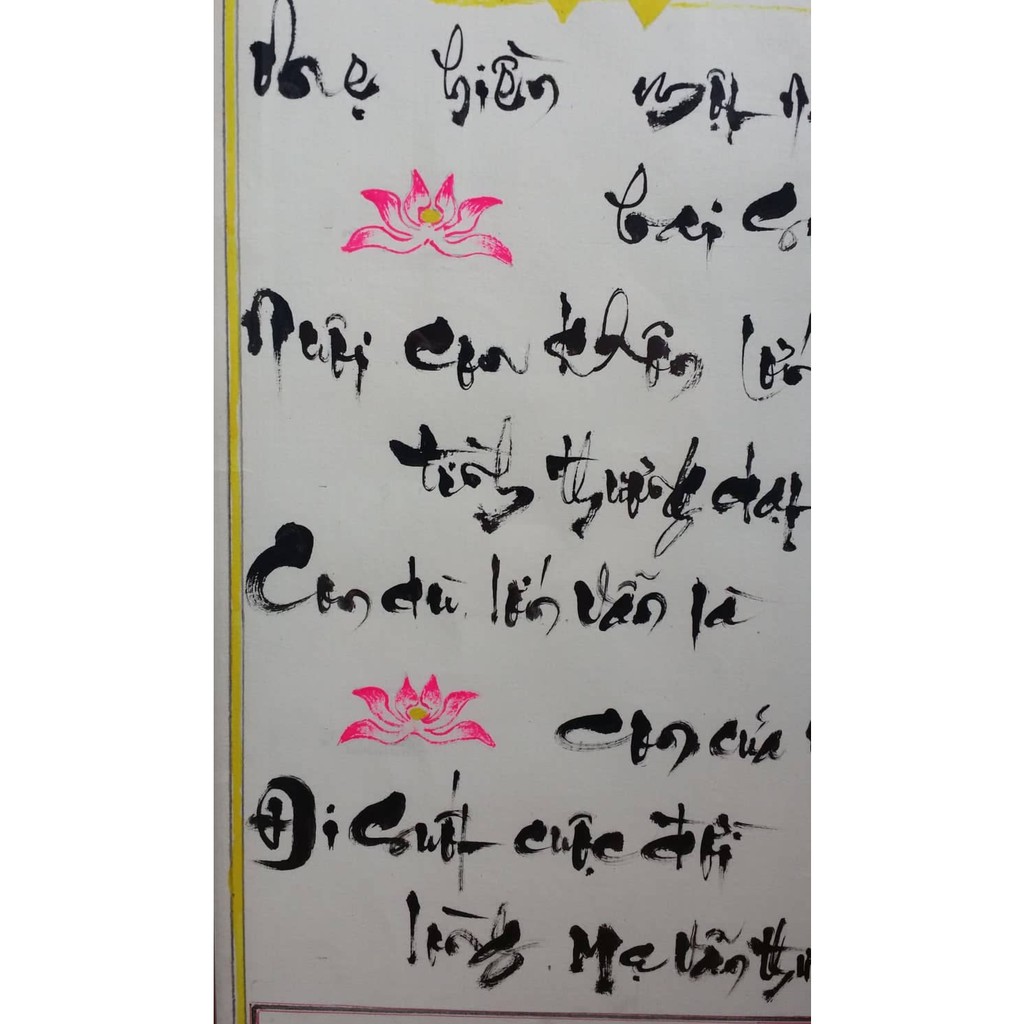 Mẹ hiền một n
hai s
Nuôi con khôn lớn
tình thương dạt
Con dù lớn vẫn là
con của
Đi suốt cuộc đời
lòng Mẹ vẫn th